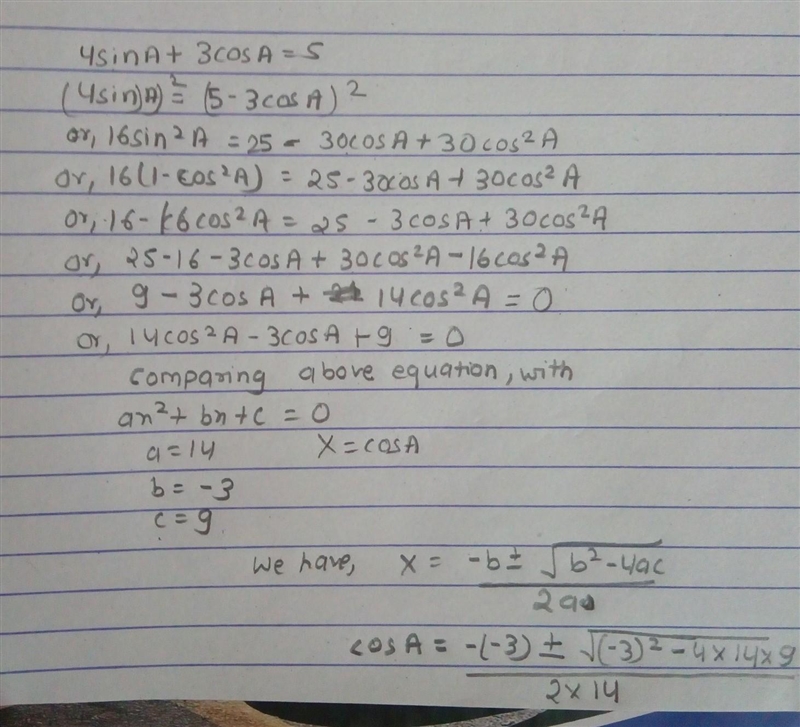 4sinA + 3cosA = 5
(4sinA)² = (5 - 3cosA)²
or, 16sin²A = 25 - 30cosA + 30cos²A
or, 16(1 - cos²A) = 25 - 30cosA + 30cos²A
or, 16 - 16cos²A = 25 - 3cosA + 30cos²A
or, 25 - 16 - 3cosA + 30cos²A - 16cos²A
or, 9 - 3cosA + 14cos²A = 0
or, 14cos²A - 3cosA + 9 = 0
comparing above equation, with
ax² + bx + c = 0
a = 14 X = cosA
b = -3
c = 9
We have, X = -b ± √b² - 4ac
2a
cosA = -(-3) ± √(-3)² - 4×14×9
2×14